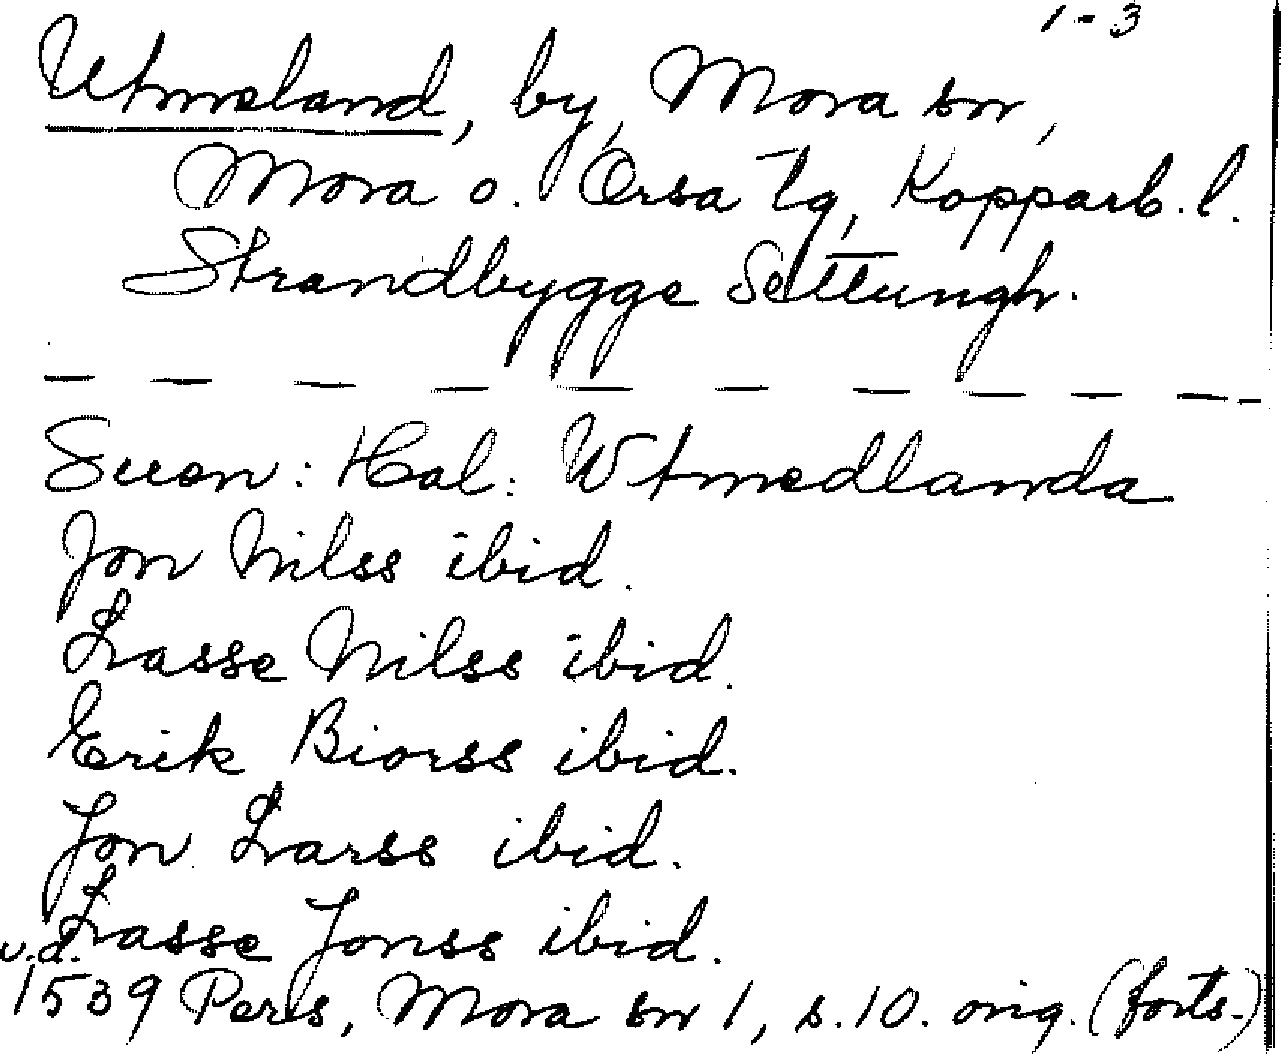 1-3
Utmeland, by, Mora sn,
Mora o. Orsa tg, Kopparb. l.
Strandbygge Settungh.
Suen: Hal: Wtmedlanda
Jon Nilss ibid.
Lasse Nilss ibid.
Erik Biorss ibid.
Jon Larss ibid.
Lasse Jonss ibid.
u.d.
1539 Pers, Mora sn 1, s.10. orig. (forts.)